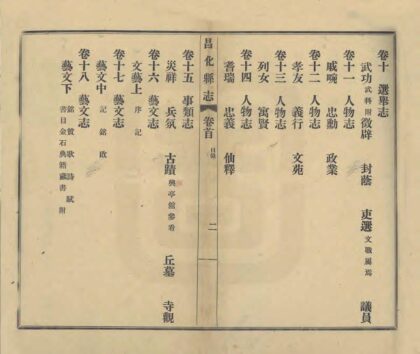 卷十 選舉志
武功 武科附 徵辟 封蔭 吏選 文職屬焉 議員
卷十一 人物志
戚畹 忠勳 政業
卷十二 人物志
孝友 義行 文苑
卷十三 人物志
列女 寓賢
卷十四 人物志
耆瑞 忠義 仙釋
昌化縣志 卷首 目錄 二
卷十五 事類志
災祥 兵氛 古蹟 興亭館參看 丘墓 寺觀
卷十六 藝文志
文藝上 序 記
卷十七 藝文志
藝文中 記 銘 啟
卷十八 藝文志
藝文下 銘 贊 歌 詩 賦
書目金石典籍藏書附